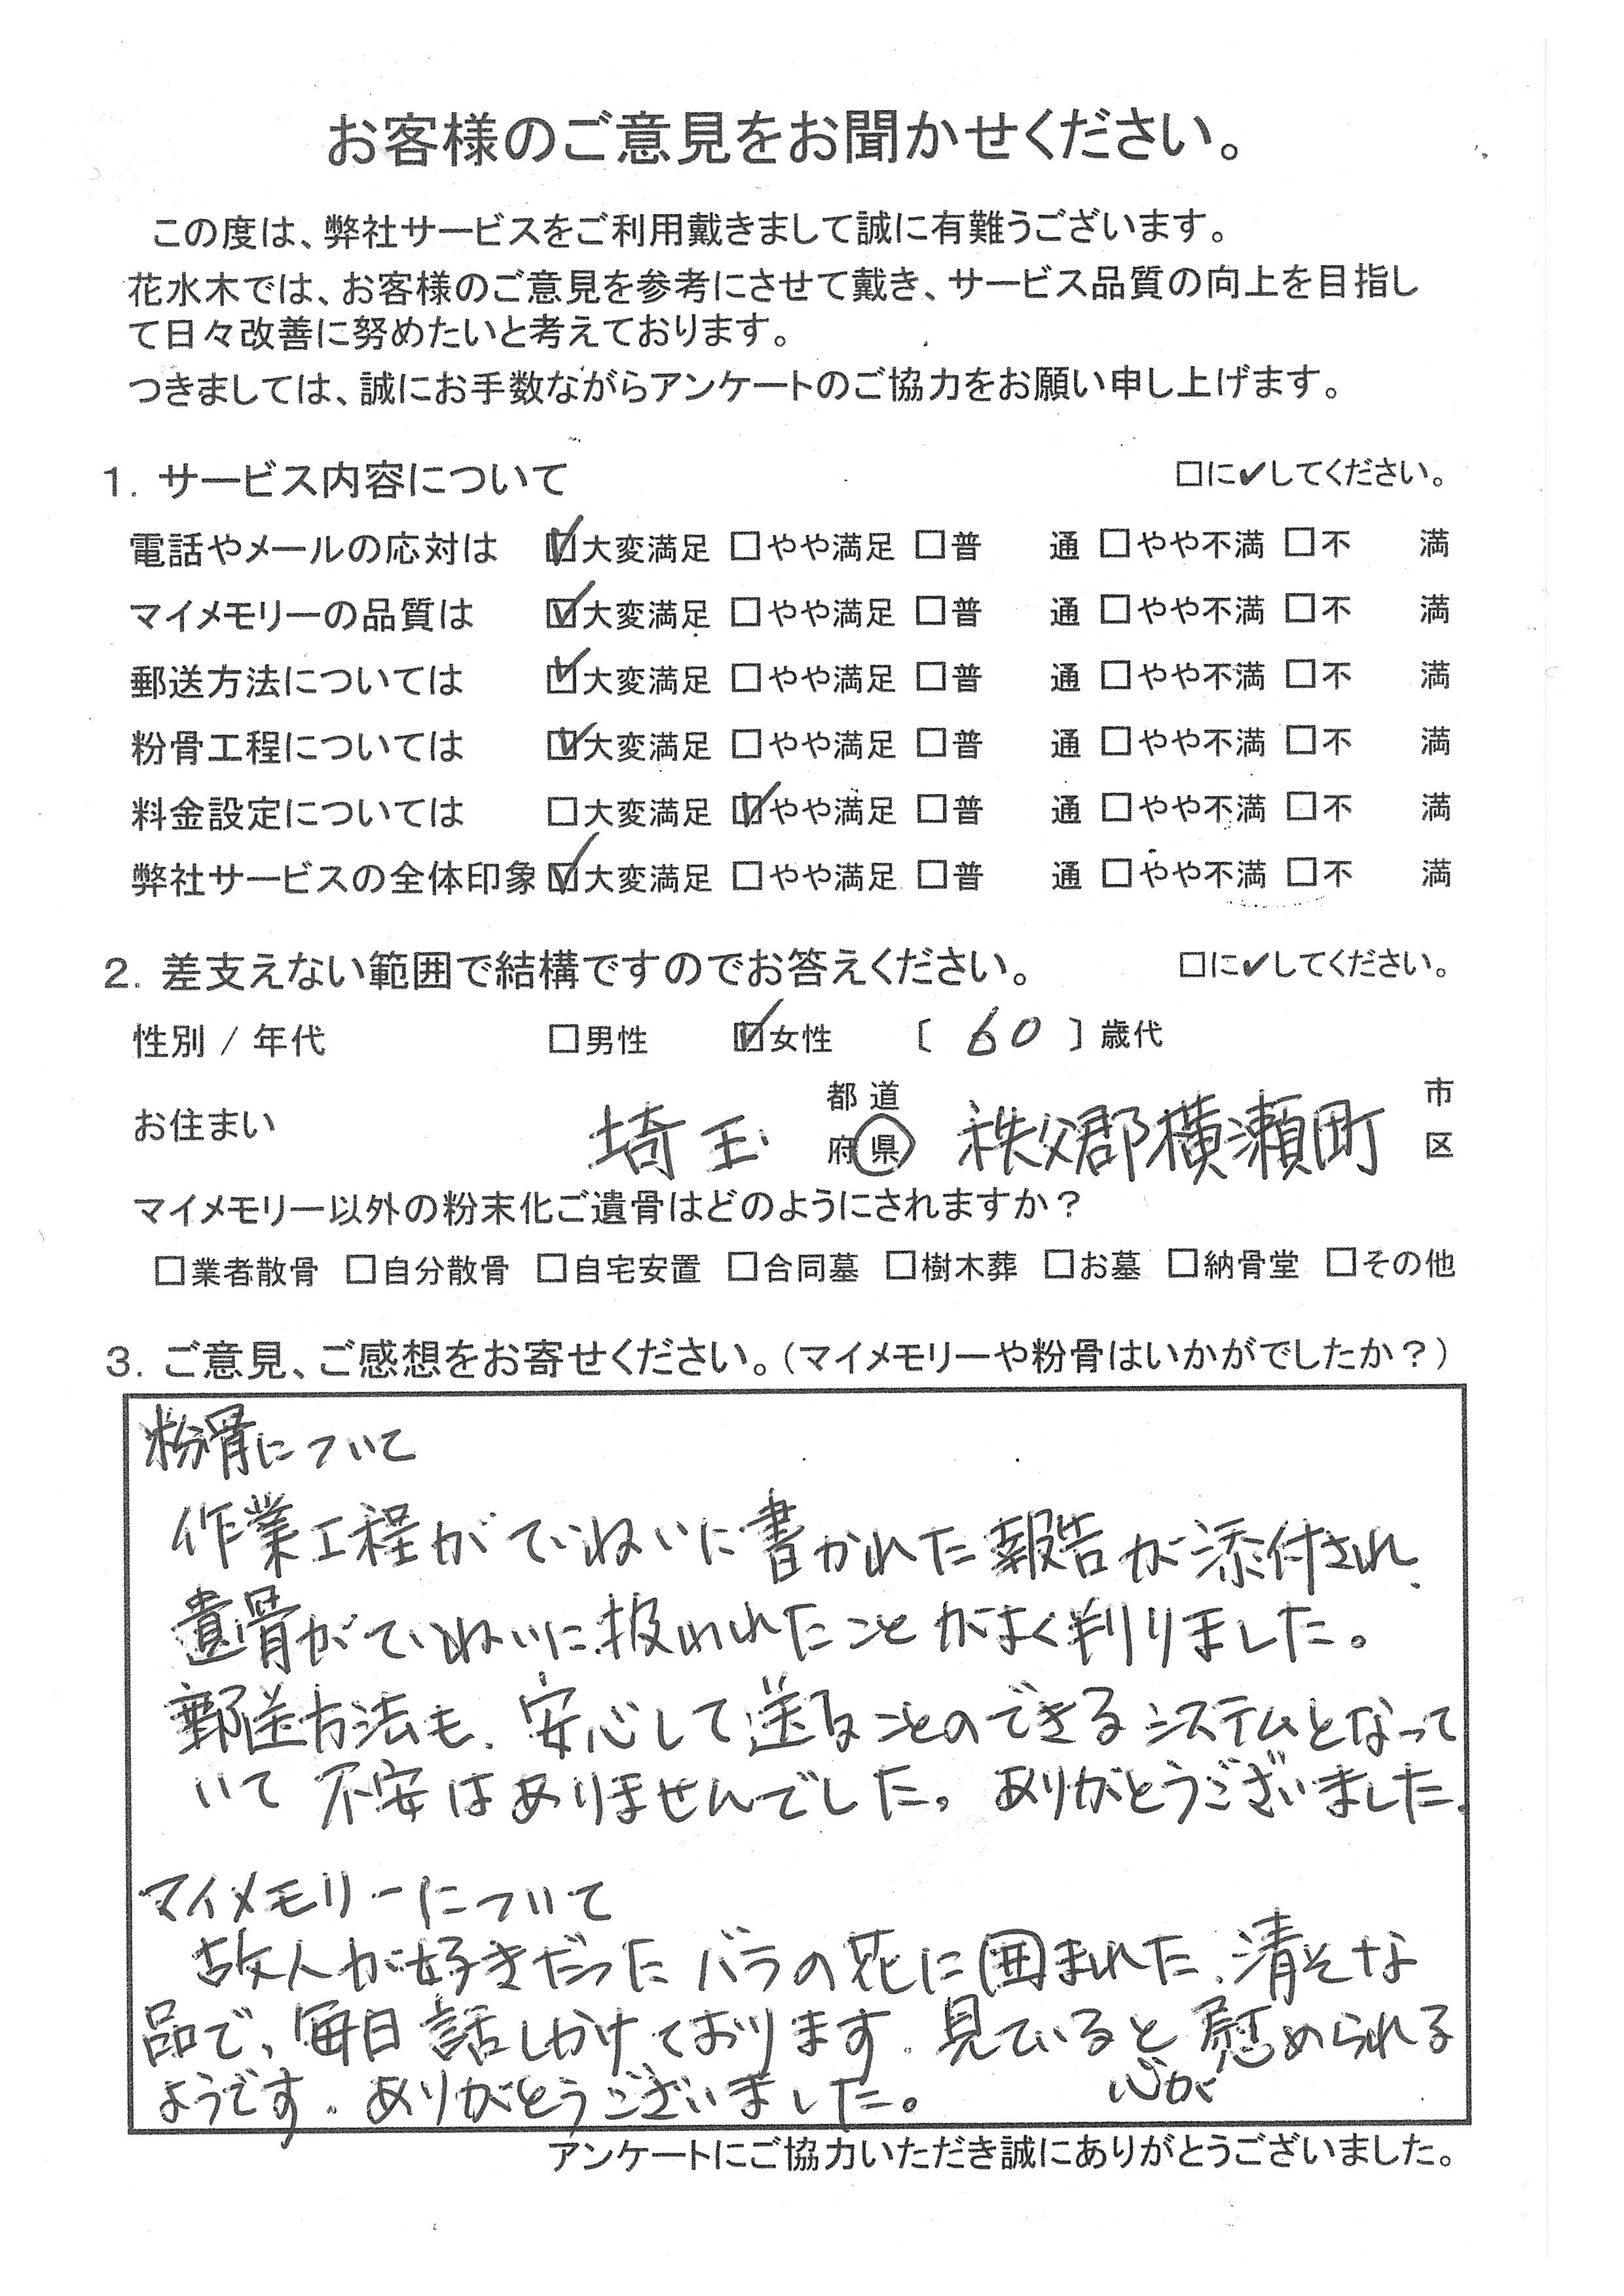 お客様のご意見をお聞かせください。
この度は、弊社サービスをご利用戴きまして誠に有難うございます。
花水木では、お客様のご意見を参考にさせて戴き、サービス品質の向上を目指し
て日々改善に努めたいと考えております。
つきましては、誠にお手数ながらアンケートのご協力をお願い申し上げます。
1. サービス内容について □に✔してください。
電話やメールの応対は ☑大変満足 □やや満足 □普 通 □やや不満 □不 満
マイメモリーの品質は ☑大変満足 □やや満足 □普 通 □やや不満 □不 満
郵送方法については ☑大変満足 □やや満足 □普 通 □やや不満 □不 満
粉骨工程については ☑大変満足 □やや満足 □普 通 □やや不満 □不 満
料金設定については □大変満足 ☑やや満足 □普 通 □やや不満 □不 満
弊社サービスの全体印象 ☑大変満足 □やや満足 □普 通 □やや不満 □不 満
2. 差支えない範囲で結構ですのでお答えください。 □に✔してください。
性別 / 年代 □男性 ☑女性 〔 60 〕歳代
都 道 市
お住まい 埼玉 府 県 秩父郡横瀬町 区
マイメモリー以外の粉末化ご遺骨はどのようにされますか？
□業者散骨 □自分散骨 □自宅安置 □合同墓 □樹木葬 □お墓 □納骨堂 □その他
3. ご意見、ご感想をお寄せください。（マイメモリーや粉骨はいかがでしたか？）
粉骨について
作業工程がていねいに書かれた報告が添付され、
遺骨がていねいに扱われたことがよく判りました。
郵送方法も、安心して送ることのできるシステムとなって
いて 不安はありませんでした。ありがとうございました。
マイメモリーについて
故人が好きだったバラの花に囲まれた、清そな
品で、毎日話しかけております。見ていると慰められる
心が
ようです。ありがとうございました。
アンケートにご協力いただき誠にありがとうございました。